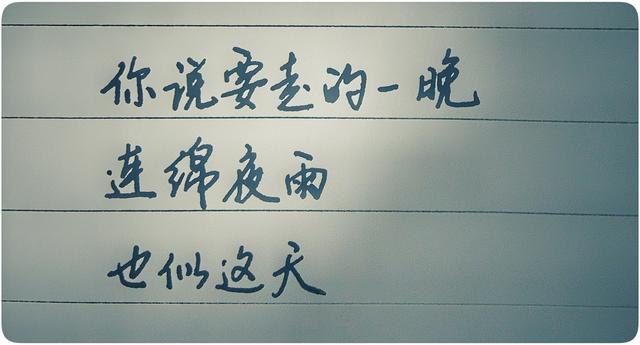 你说要走的一晚
连绵夜雨
也似这天